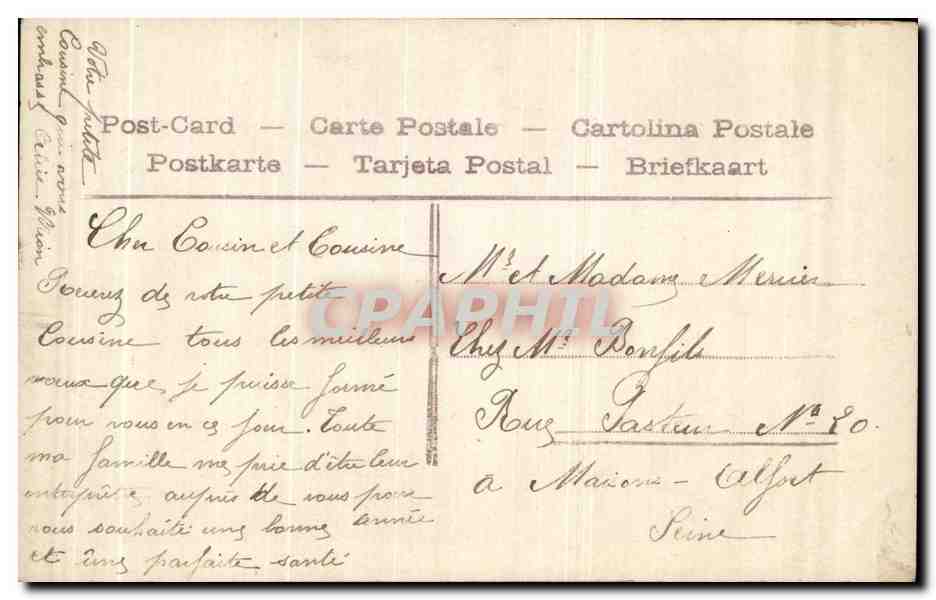 Post-Card — Carte Postale — Cartolina Postale
Postkarte — Tarjeta Postal — Briefkaart
Cher Cousin et Cousine
Recevez de votre petite
Cousine tous les meilleurs
vœux que je puisse formé
pour vous en ce jour. Toute
ma famille me prie d'être leur
interprète auprès de vous pour
vous souhaité une bonne année
et une parfaite santé
Votre petite
Cousine qui vous
embrasse
Mr et Madame Mercier
Chez Mr Bonfils
Rue Pasteur No 20.
à Maisons-Alfort
Seine
CPAPHIL